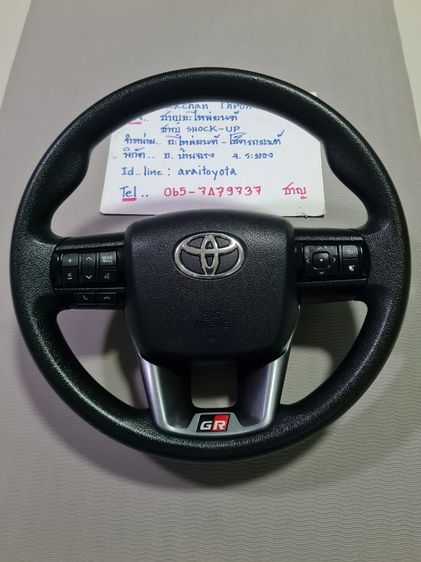 ชาญอะไหล่ยนต์
ชาญ SHOCK-UP
จำหน่าย.. อะไหล่ยนต์ - โช๊ครถยนต์
พิกัด.. อ. บ้านฉาง จ. ระยอง
Id..line : araitoyota
Tel.. 065-7479737 ชาญ
MODE
SRS
AIRBAG
GR